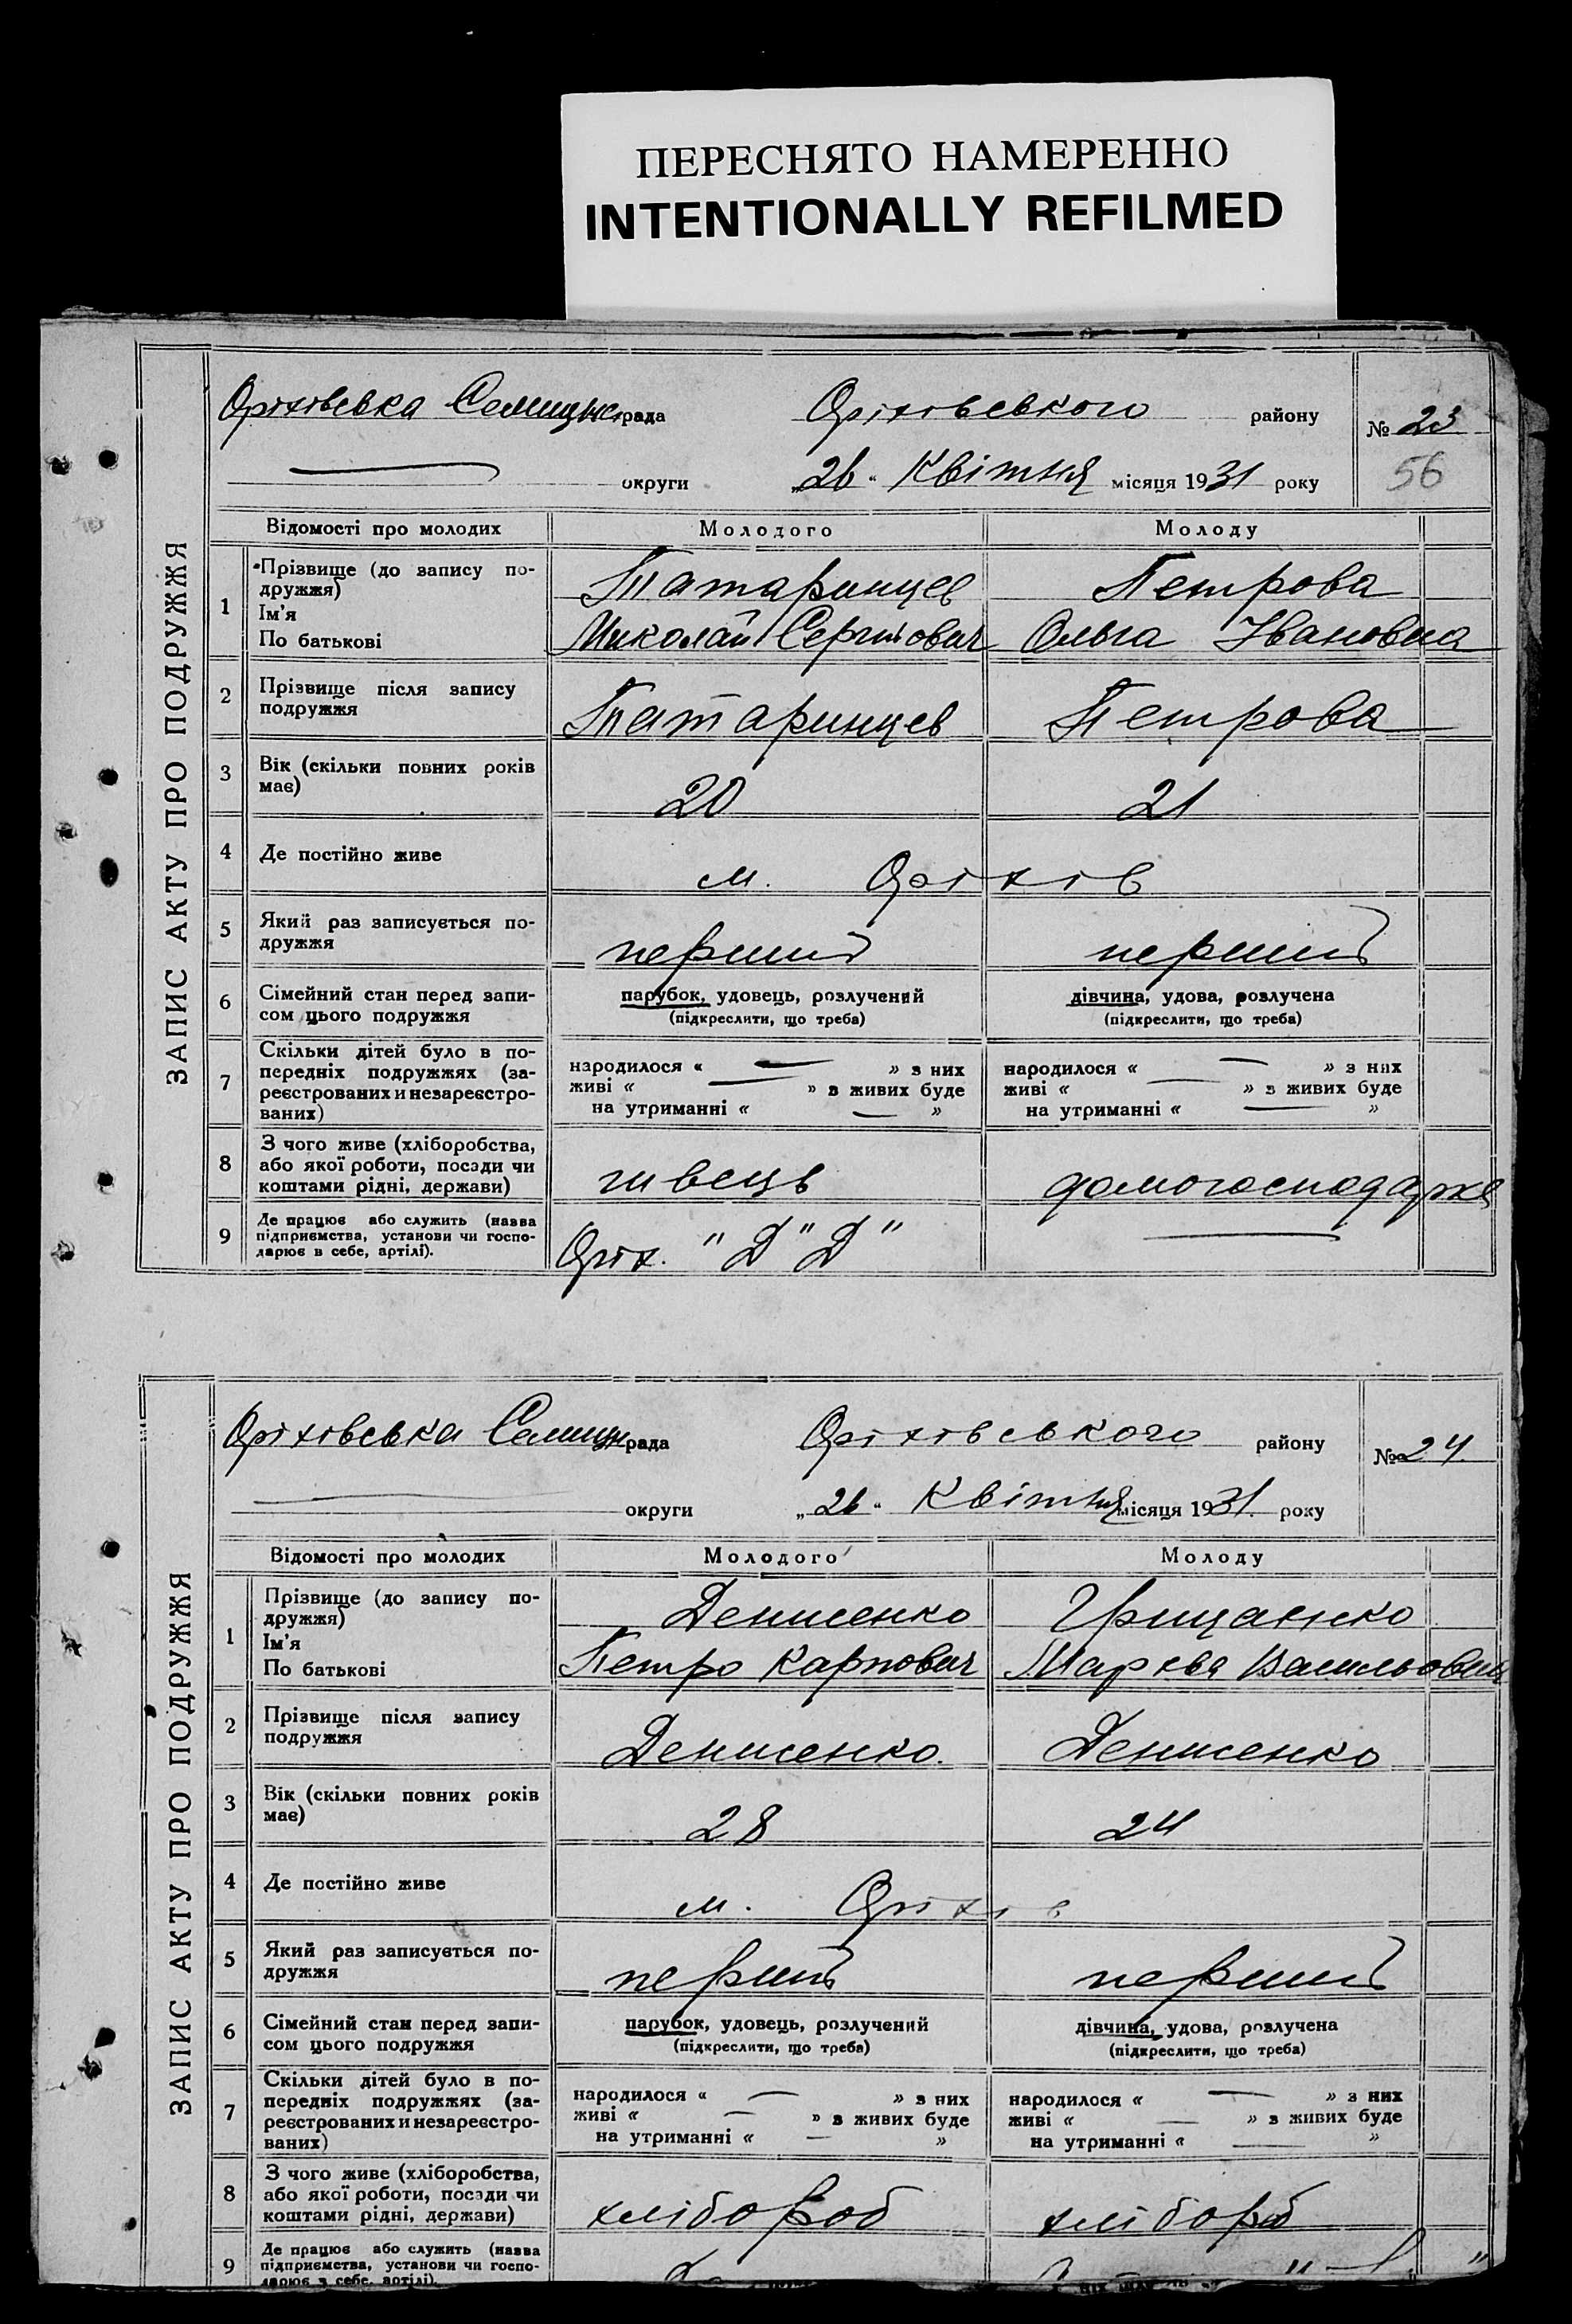 ПЕРЕСНЯТО НАМЕРЕННО
INTENTIONALLY REFILMED
ЗАПИС АКТУ ПРО ПОДРУЖЖЯ
Оріхівська Селищн рада Оріхівського району № 23
округи „26“ Квітня місяця 1931 року 56
Відомості про молодих Молодого Молоду
1 Прізвище (до запису по-
дружжя) Татаринцев Петрова
Ім'я
По батькові Миколай Сергійович Ольга Івановна
2 Прізвище після запису
подружжя Татаринцев Петрова
3 Вік (скільки повних років
має) 20 21
4 Де постійно живе м. Оріхів
5 Який раз записується по-
дружжя перший перший
6 Сімейний стан перед запи-
сом цього подружжя
парубок, удовець, розлучений дівчина, удова, розлучена
(підкреслити, що треба) (підкреслити, що треба)
7 Скільки дітей було в по-
передніх подружжях (за-
реєстрованих и незареєстро-
ваних)
народилося « — » з них народилося « — » з них
живі « — » з живих буде живі « — » з живих буде
на утриманні « — » на утриманні « — »
8 З чого живе (хліборобства,
або якої роботи, посади чи
коштами рідні, держави) швець домогосподарка
9 Де працює або служить (назва
підприємства, установи чи госпо-
дарює в себе, артілі). Оріх. "Д" Д" —
ЗАПИС АКТУ ПРО ПОДРУЖЖЯ
Оріхівська Селищн рада Оріхівського району № 24
округи „26“ Квітня місяця 1931. року
Відомості про молодих Молодого Молоду
1 Прізвище (до запису по-
дружжя) Денисенко Грищаєнко
Ім'я
По батькові Петро Карпович Васильовна
2 Прізвище після запису
подружжя Денисенко. Денисенко
3 Вік (скільки повних років
має) 28 24
4 Де постійно живе м. Оріхів
5 Який раз записується по-
дружжя перший перший
6 Сімейний стан перед запи-
сом цього подружжя
парубок, удовець, розлучений дівчина, удова, розлучена
(підкреслити, що треба) (підкреслити, що треба)
7 Скільки дітей було в по-
передніх подружжях (за-
реєстрованих и незареєстро-
ваних)
народилося « — » з них народилося « — » з них
живі « — » з живих буде живі « — » з живих буде
на утриманні « — » на утриманні « — »
8 З чого живе (хліборобства,
або якої роботи, посади чи
коштами рідні, держави) хлібороб хлібороб
9 Де працює або служить (назва
підприємства, установи чи госпо-
дарює в себе, артілі).